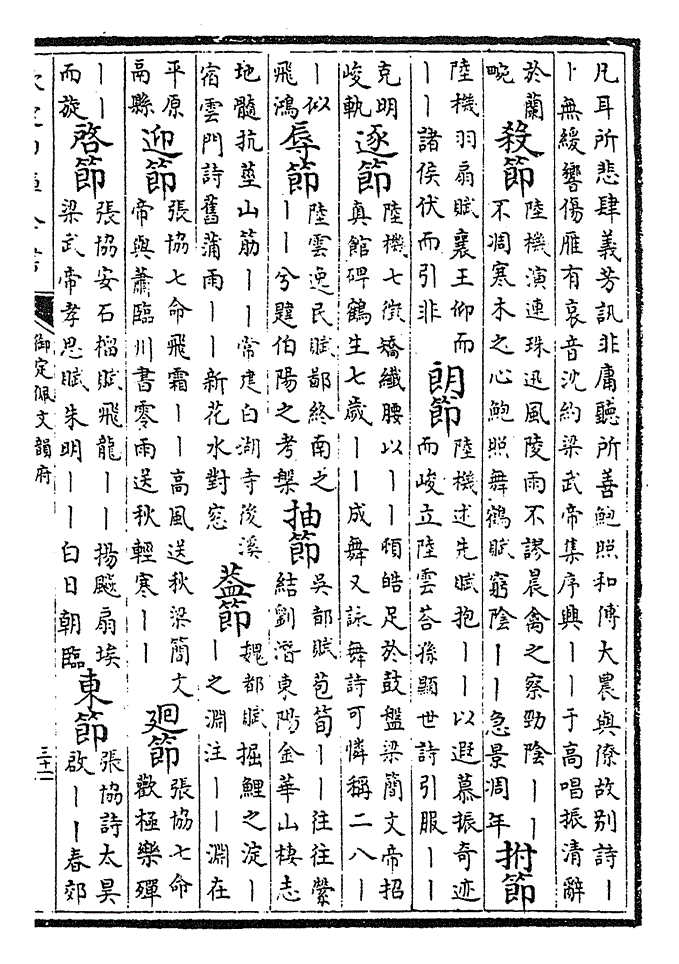 凡耳所悲肆義芳訊非庸聽所善鮑照和傅大農與僚故别詩丨
丨無緩響傷雁有哀音沈約梁武帝集序興丨丨于高唱振清辭
於蘭
畹
殺節
陸機演連珠迅風陵雨不謬晨禽之察勁陰丨丨
不凋寒木之心鮑照舞鶴賦窮陰丨丨急景凋年
拊節
陸機羽扇賦襄王仰而
丨丨諸侯伏而引非
朗節
陸機述先賦抱丨丨以遐慕振奇迹
而峻立陸雲荅孫顯世詩引服丨丨
克明
峻軌
逐節
陸機七徵矯纖腰以丨丨頓皓足於鼓盤梁簡文帝招
真館碑鶴生七歲丨丨成舞又詠舞詩可憐稱二八丨
丨似
飛鴻
辱節
陸雲逸民賦鄙終南之
丨丨兮韙伯陽之考槃
抽節
吳都賦苞筍丨丨往往縈
結劉潛東陽金華山棲志
地髓抗莖山筋丨丨常建白湖寺後溪
宿雲門詩舊蒲雨丨丨新花水對窓
葢節
魏都賦掘鯉之淀丨
丨之淵注丨丨淵在
平原
高縣
迎節
張協七命飛霜丨丨高風送秋梁簡文
帝與蕭臨川書零雨送秋輕寒丨丨
廻節
張協七命
歡極樂殫
丨丨
而旋
啓節
張協安石榴賦飛龍丨丨揚颷扇埃
梁武帝孝思賦朱明丨丨白日朝臨
東節
張協詩太昊
啟丨丨春郊
御定佩文韻府
三十二